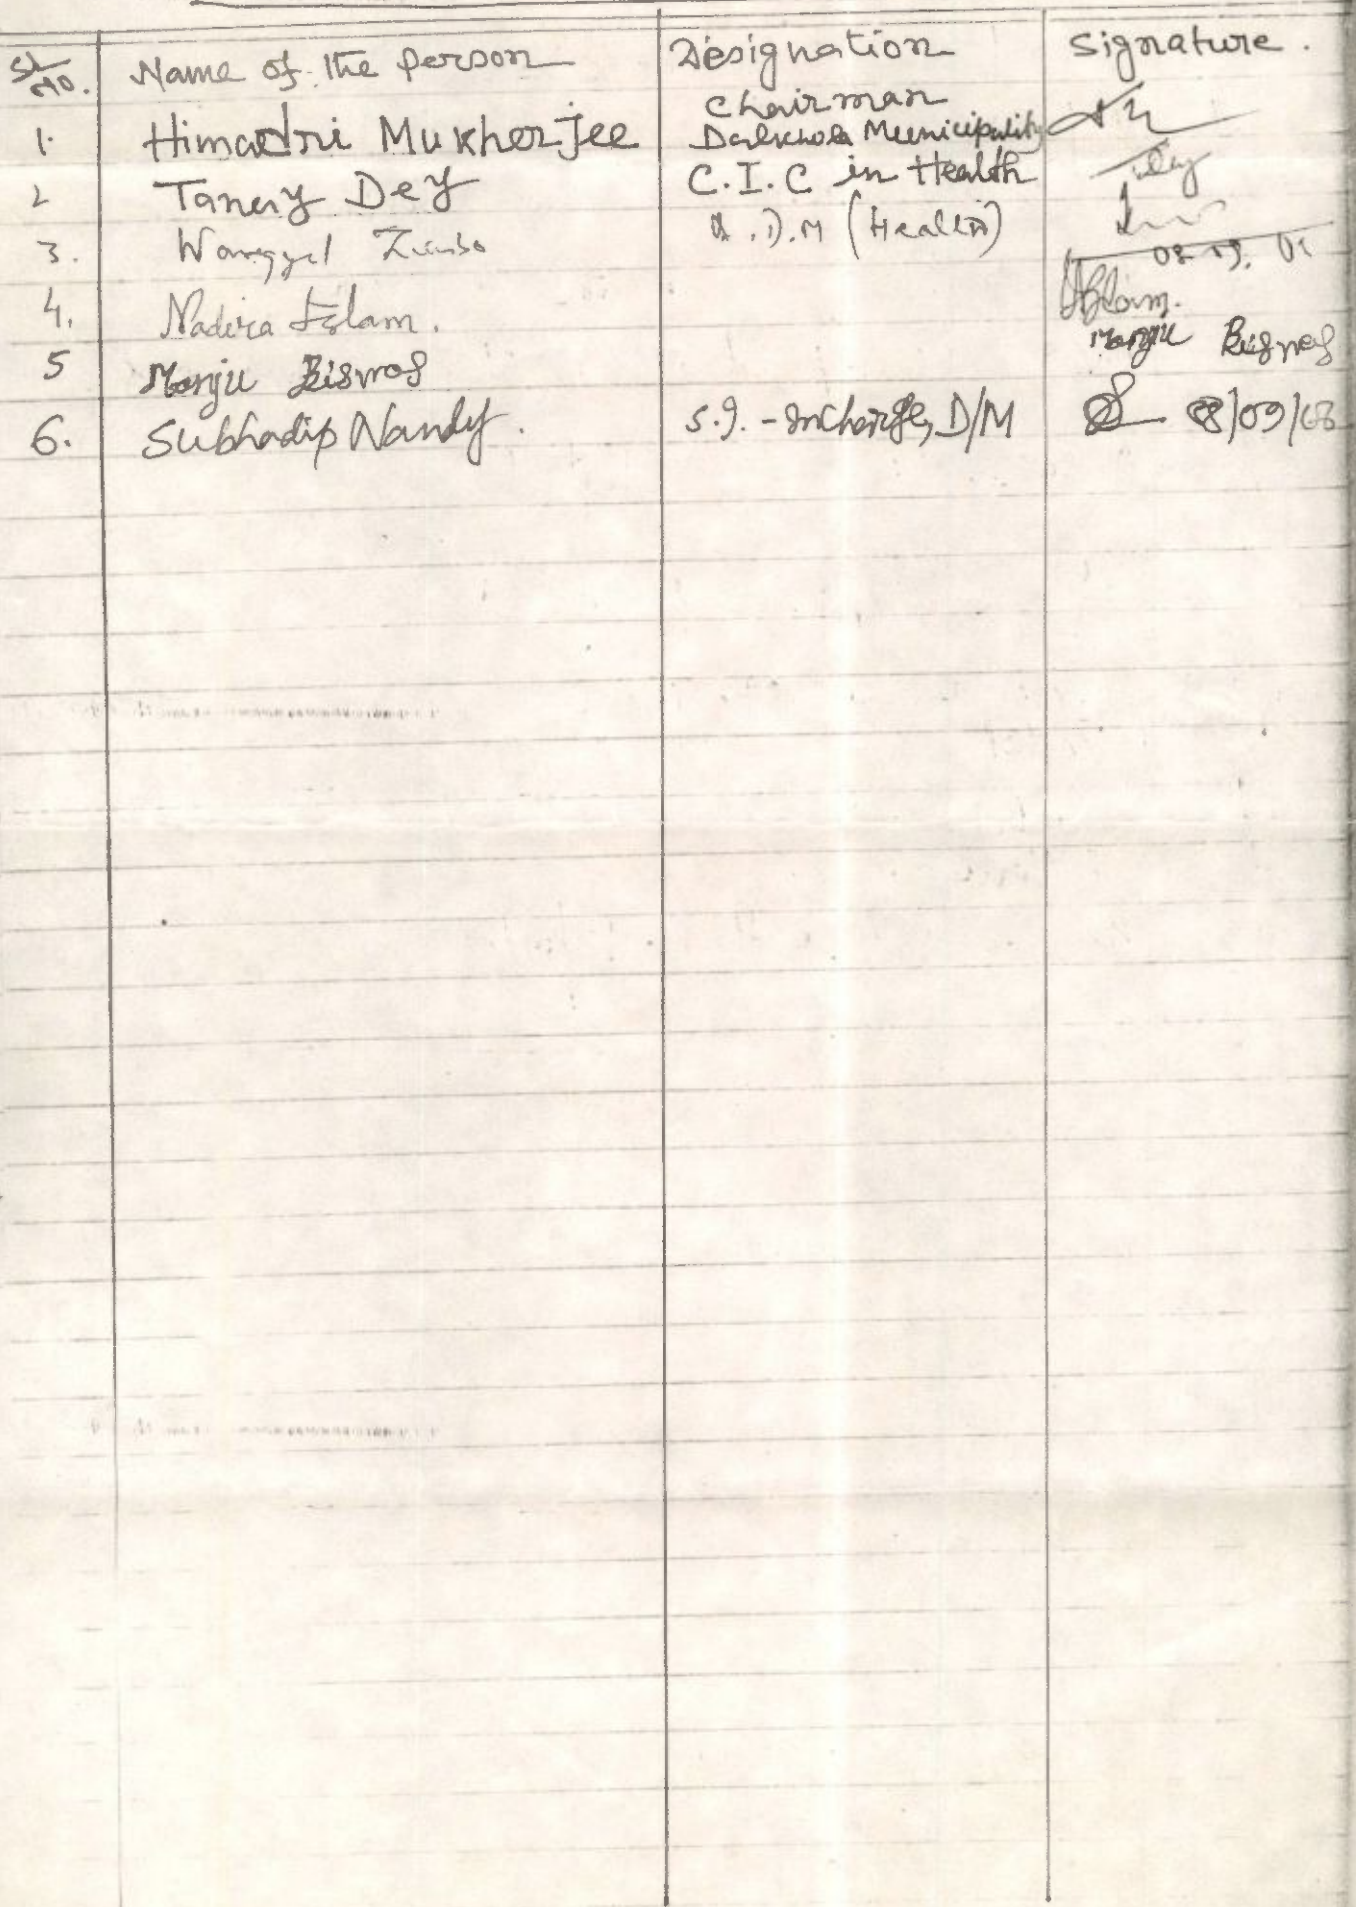 Sl No. Name of the person Designation Signature.
Chairman
1. Himadri Mukherjee Dalkhola Municipality
2 Tanay Dey C.I.C in Health
3. Wanggyel Zimba A.D.M (Health)
08.09.
4. Nadira Islam. Islam.
5 Manju Biswas Manju Biswas
6. Subhadip Nandy. S.I. - Incharge, D/M 08/09/08